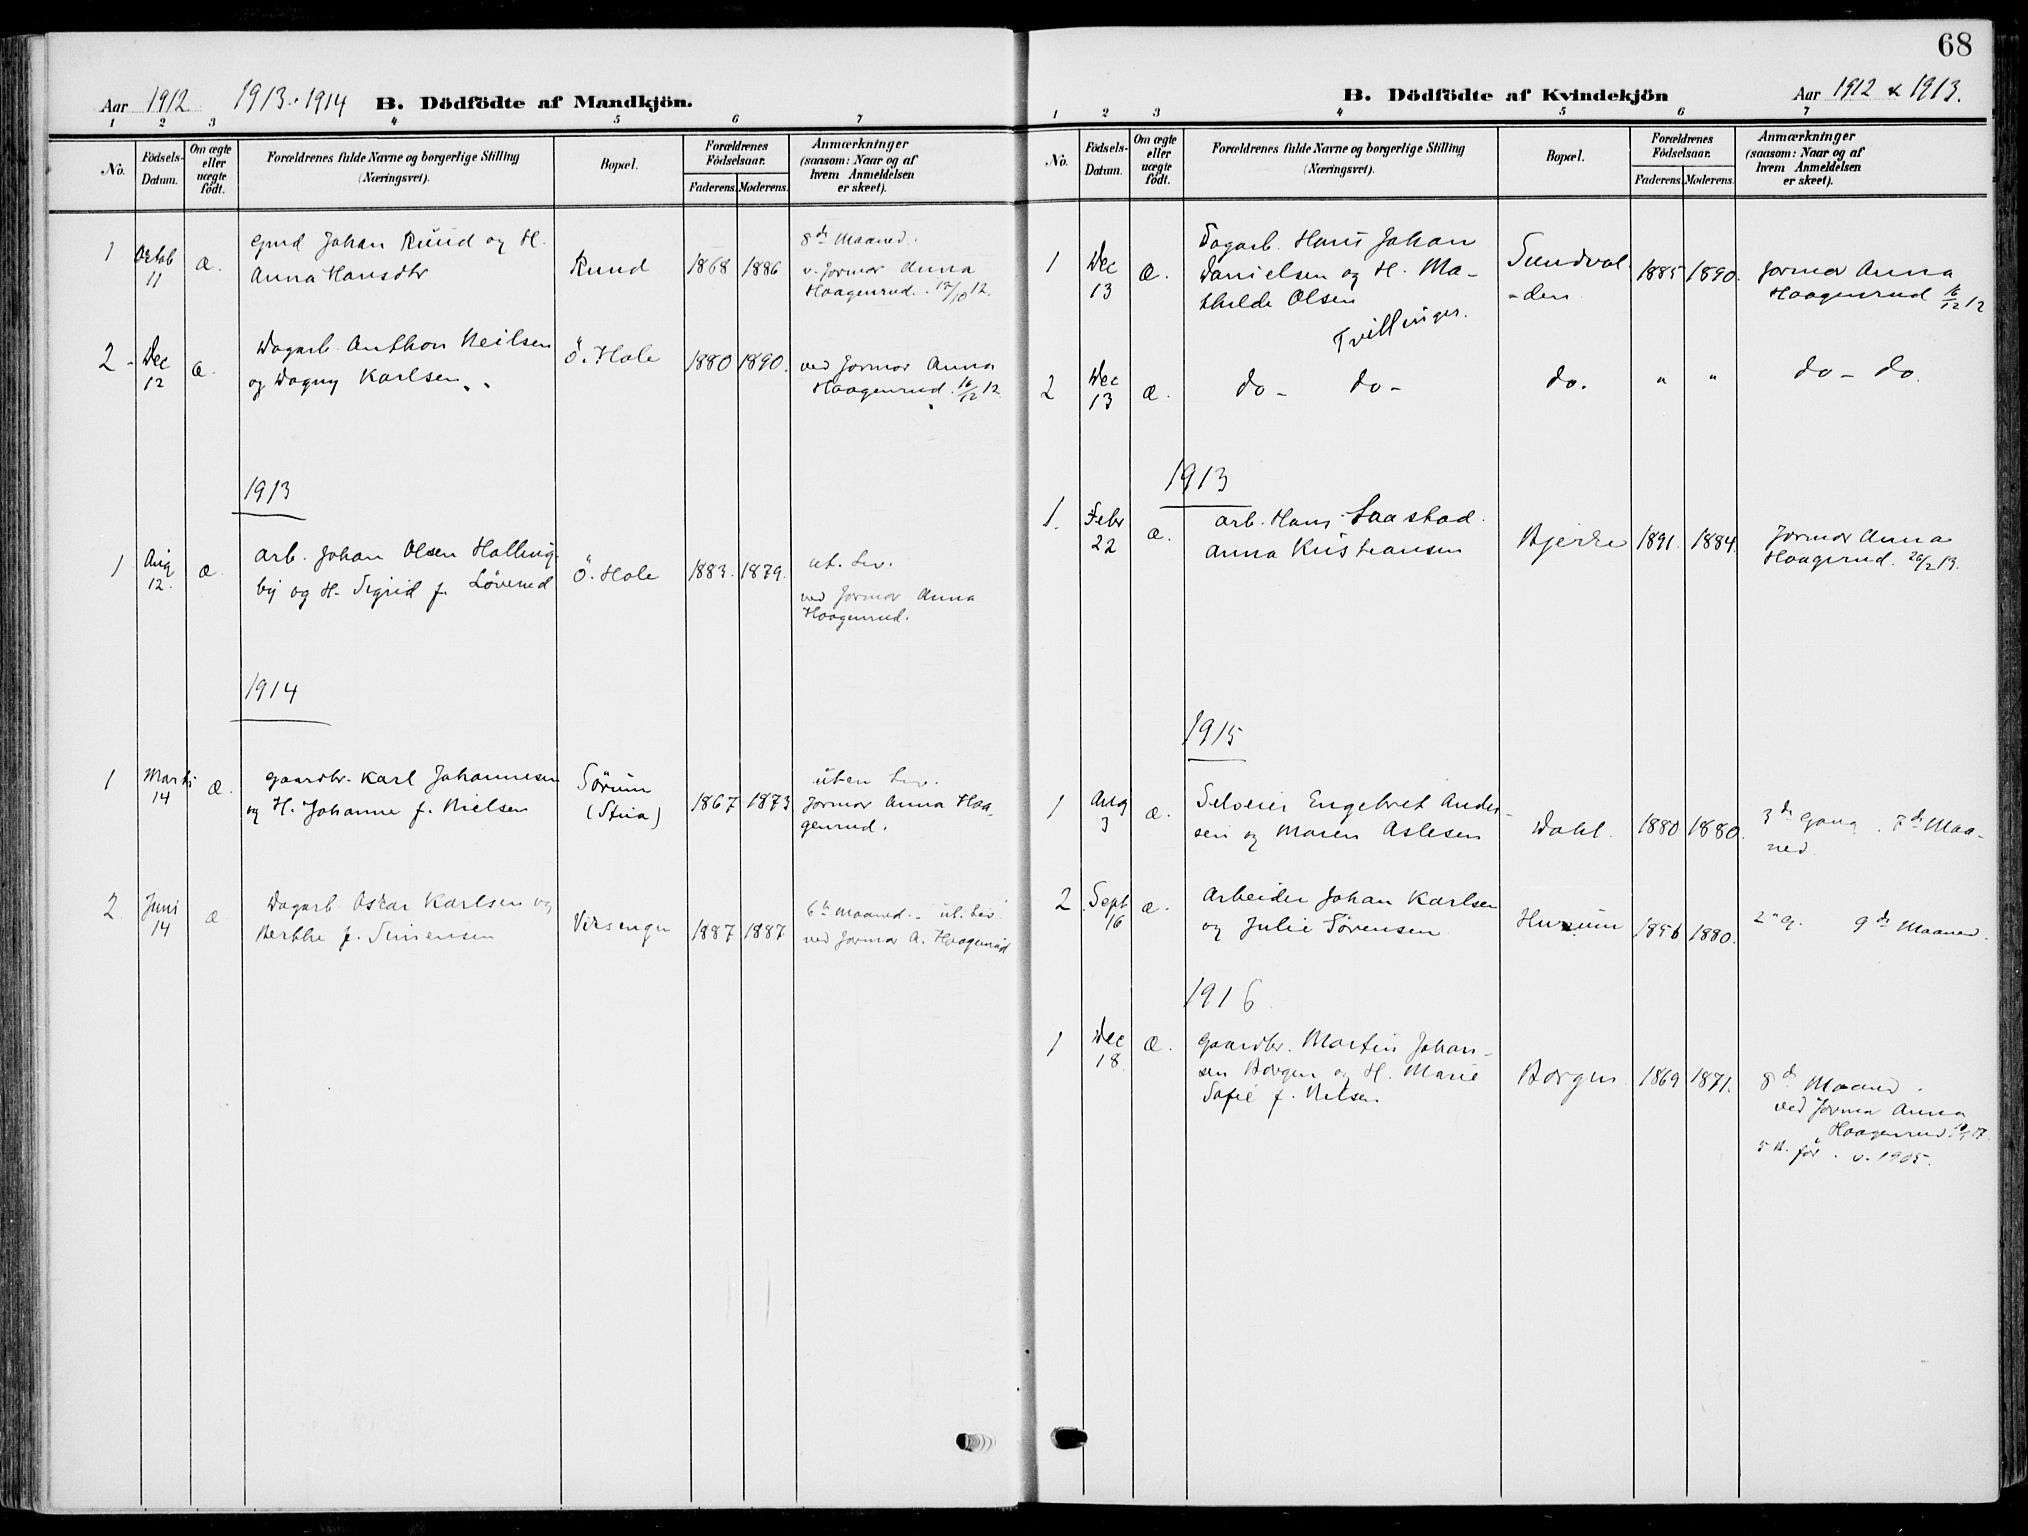 68
Aar 1912 1913. 1914 B. Dödfödte af Mandkjön.
1 2 3 4 5 6 7
No.
Födsels-
Datum.
Om ægte
eller
uægte
födt.
Forældrenes fulde Navne og borgerlige Stilling
(Næringsvei).
Bopæl.
Forældrenes
Födselsaar.
Faderens. Moderens.
Anmærkninger
(saasom: Naar og af
hvem Anmeldelsen
er skeet).
1 Octob 11 æ. Gmd Johan Rund og H.
Anna Hansdtr
Rund 1868 1886
8de Maaned.
v. Jormor Anna
Haagenrud. 12/10 12.
2 - Dec 12 æ. Dagarb. Anthon Neilsen
og Dagny Karlsen
Ö. Hole 1880 1890.
ved Jormor Anna
Haagenrud. 16/12 12
1913
1 Aug 12. æ. Arb. Johan Olsen Halling-
by og H. Sigrid f. Løverud
Ö. Hole 1883. 1879.
ut. Liv.
ved Jormor Anna
Haagenrud.
1914
1 Marts 14 æ. Gaardbr. Karl Johannesen
og H. Johanne f. Nielsen
Sørum
(Stua) 1867 1873
uten Liv.
Jormor Anna Haa-
genrud.
2. Juni 14 æ Dagarb Oskar Karlsen og
Berthe f. Simensen
1887 1887
6te Maaned. - ut. Liv.
ved Jormor A. Haagenrud
B. Dödfödte af Kvindekjön Aar 1912 & 1913.
1 2 3 4 5 6 7
No.
Födsels-
Datum.
Om ægte
eller
uægte
födt.
Forældrenes fulde Navne og borgerlige Stilling
(Næringsvei).
Bopæl.
Forældrenes
Födselsaar.
Faderens. Moderens.
Anmærkninger
(saasom: Naar og af
hvem Anmeldelsen
er skeet).
1 Dec 13 æ. Dagarb. Hans Johan
Danielsen og H. Ma-
thilde Olsen
Tvillinger.
Sundvol-
den. 1885 1890.
Jormor Anna
Haagenrud 16/12 12
2 Dec 13 æ. do - do - do. " " do - do.
1913
1. Febr 22 æ. Arb. Hans Saastad.
Anna Kristiansen
Bjerke 1891. 1884.
Jormor Anna
Haagerud. 26/2 13.
1915
1 Aug 3 æ. Selveier Engebret Ander-
sen og Maren Aslesen
Dahl. 1880 1880.
3de Gang. 7de Maa-
ned.
2. Sept 16 æ. Arbeider Johan Karlsen
og Julie Sørensen
Husum 1856 1880.
2" g. 9de Maaned.
1916
1 Dec 18. æ. Gaardbr. Martin Johan-
sen Borgen og H. Marie
Sofie f. Nilsen
Borgen 1869 1871.
8de Maaned.
ved Jormor Anna
Haagenrud. 17.
5 B. før. v. 1905.